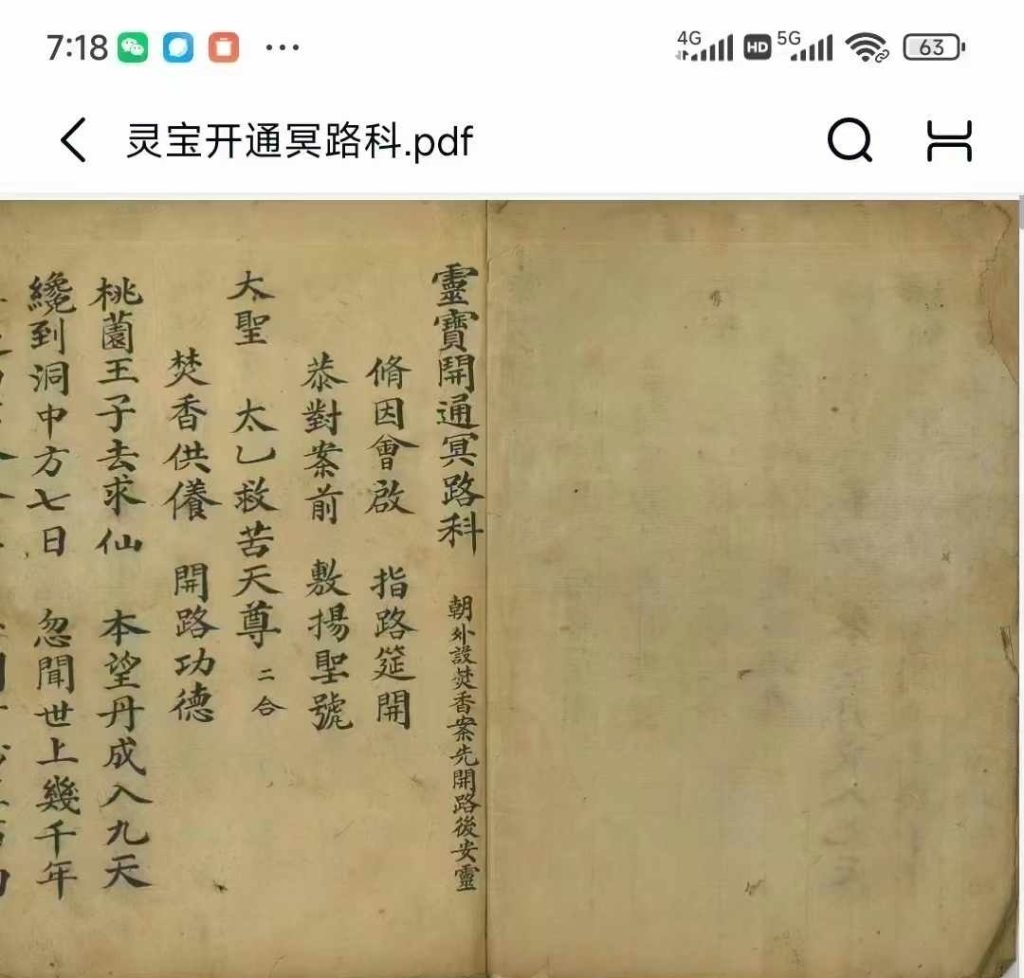 7:18
4G HD 5G 63
灵宝开通冥路科.pdf
靈寶開通冥路科 朝外設焚香案先開路後安靈
脩因會啟 指路筵開
恭對案前 敷揚聖號
大聖 太乙救苦天尊 二合
焚香供儀 開路功德
桃園王子去求仙 本望丹成入九天
纔到洞中方七日 忽聞世上幾千年